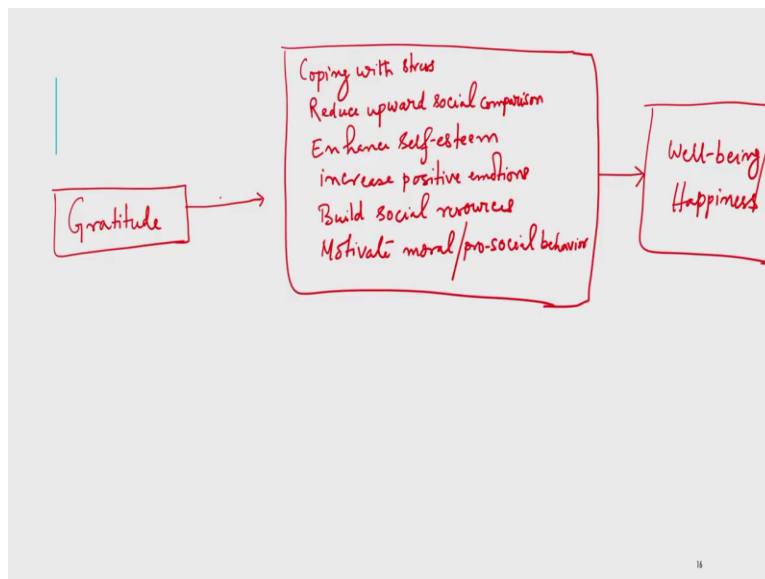 Coping with stress
Reduce upward social comparison
Enhance self-esteem
increase positive emotions
Build social resources
Motivate moral/pro-social behavior
Gratitude
Well-being/
Happiness
16